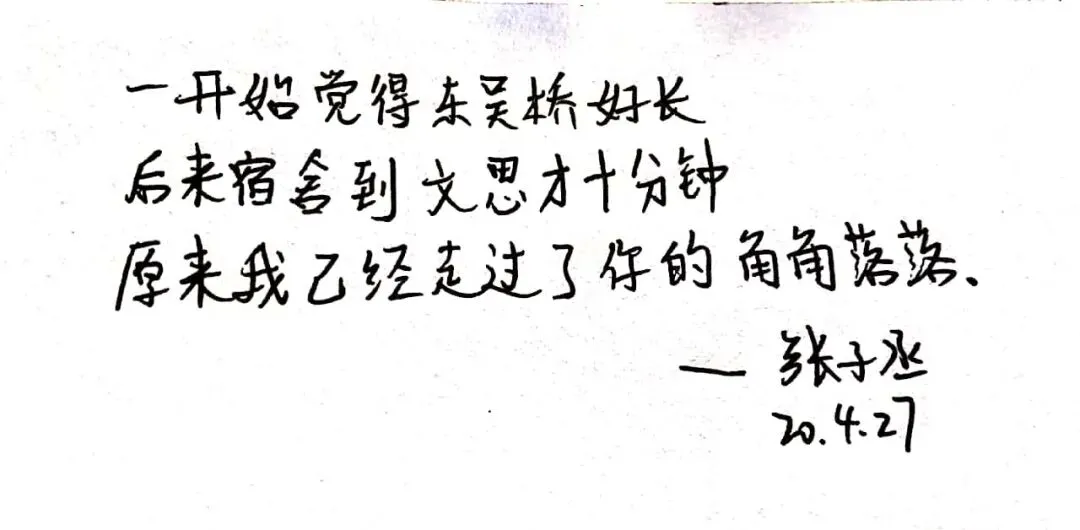 一开始觉得东吴桥好长
后来宿舍到文思才十分钟
原来我已经走过了你的角角落落、
— 张子丞
20.4.27